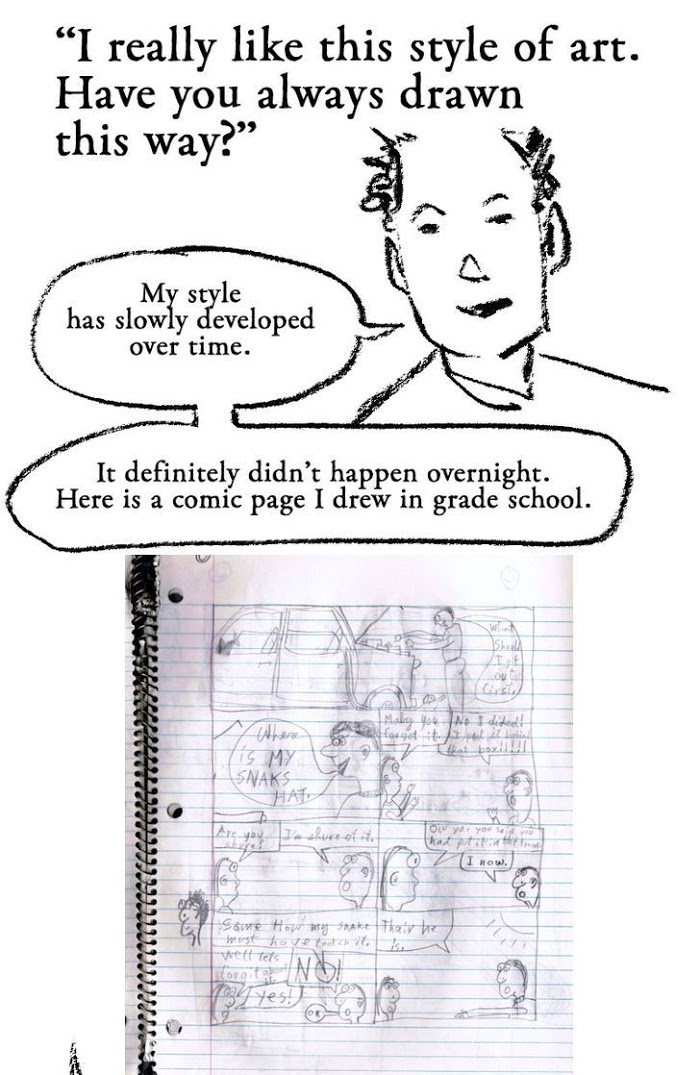 “I really like this style of art.
Have you always drawn
this way?”
My style
has slowly developed
over time.
It definitely didn’t happen overnight.
Here is a comic page I drew in grade school.
What
Should
I get
out
first.
Where
is MY
SNAKS
HAT.
forgot it.
No I dided!
I put it
that box!!!!!
Are you
I'm shure of it.
you said you
had put it in the
I now.
Some How my snake
must have it.
Thair he
is.
Well lets
forgit about
it.
NO!
yes!
OK